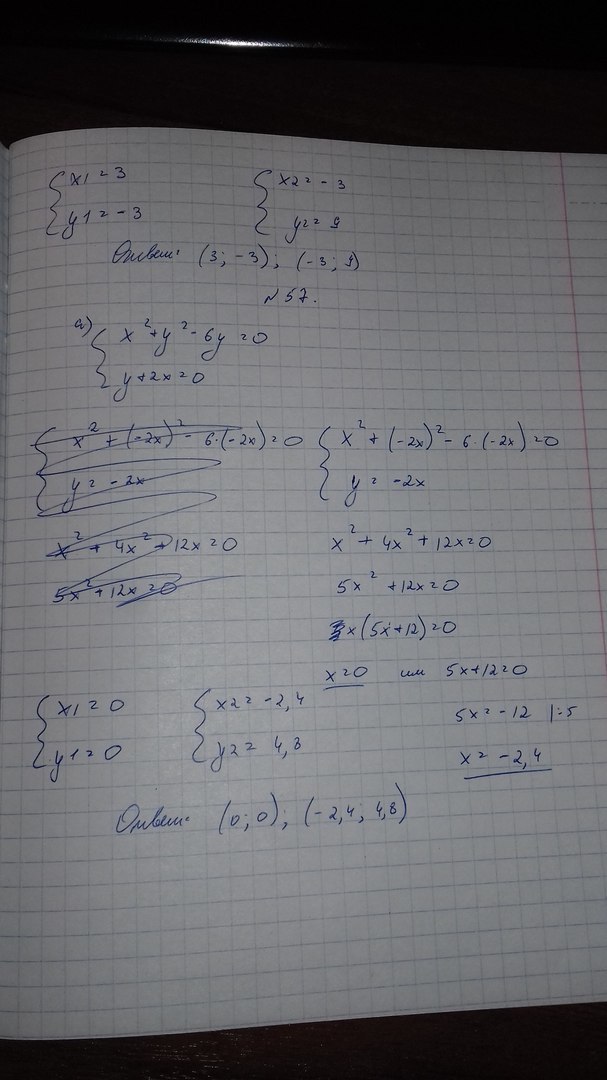 { x1 = 3 { x2 = -3
y1 = -3 y2 = 9
Ответ: (3; -3); (-3; 9)
№57.
а) { x² + y² - 6y = 0
y + 2x = 0
{ x² + (-2x)² - 6·(-2x) = 0 { x² + (-2x)² - 6·(-2x) = 0
y = -2x y = -2x
x² + 4x² + 12x = 0 x² + 4x² + 12x = 0
5x² + 12x = 0 5x² + 12x = 0
x(5x+12) = 0
x = 0 или 5x+12 = 0
{ x1 = 0 { x2 = -2,4 5x = -12 |:5
y1 = 0 y2 = 4,8 x = -2,4
Ответ: (0; 0); (-2,4; 4,8)